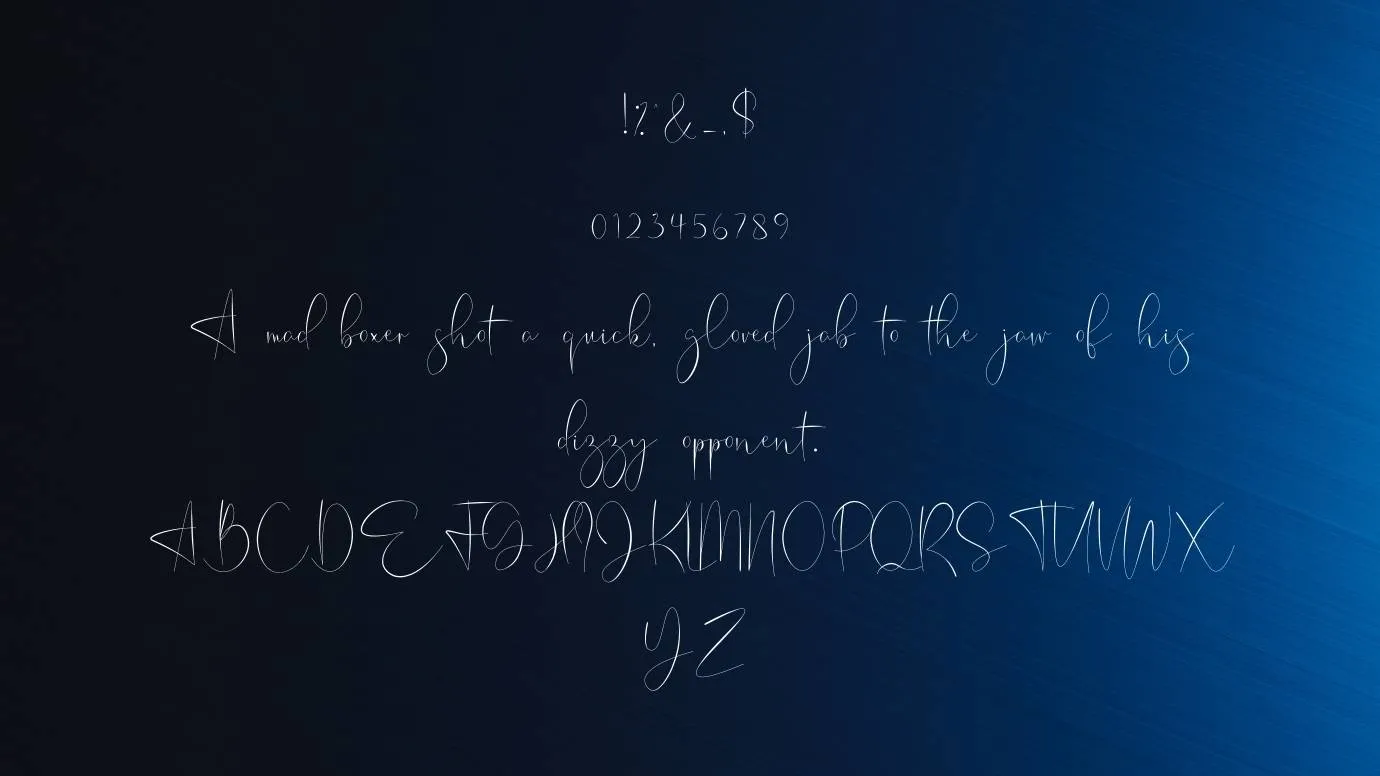 !%^&_.$
0123456789
A mad boxer shot a quick, gloved jab to the jaw of his
dizzy opponent.
ABCDEFGHIJKLMNOPQRSTUVWX
YZ